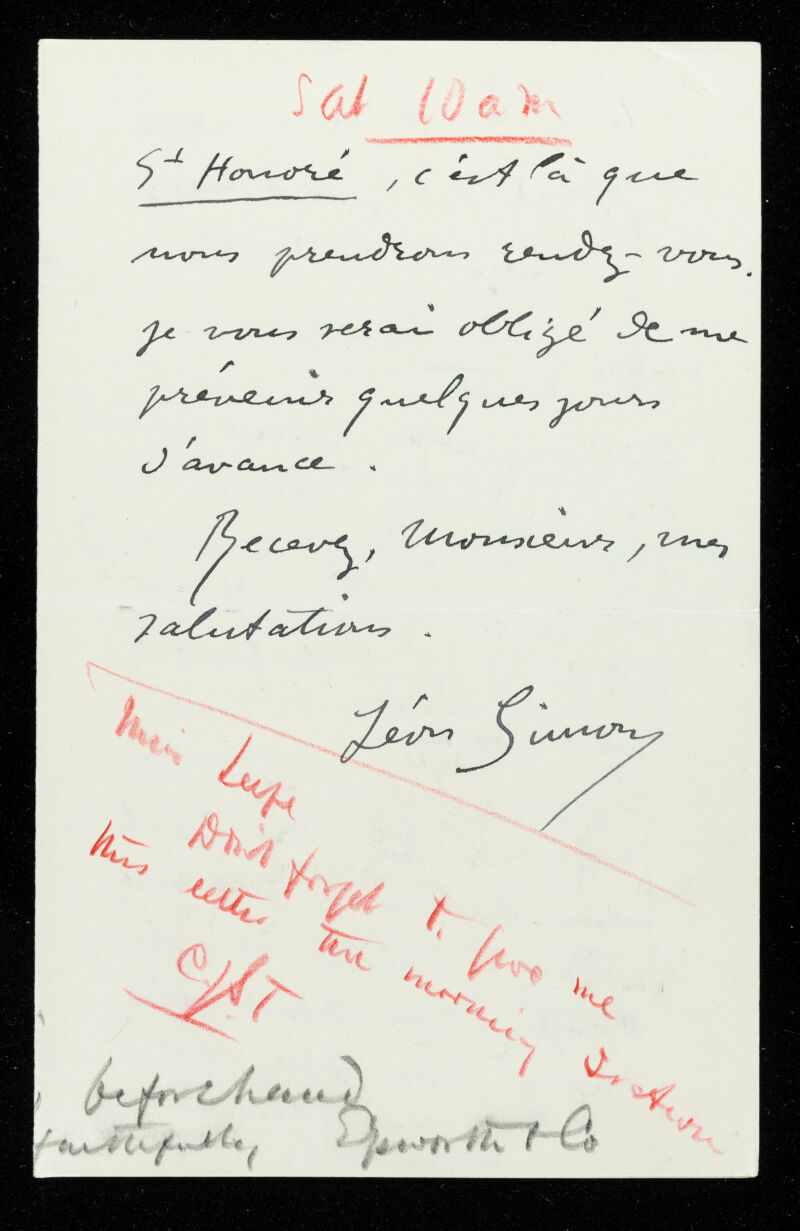 Sat 10 am
St Honoré, c'est là que
nous prendrons rendez-vous.
je vous serai obligé de me
prévenir quelques jours
d'avance.
Recevez, Monsieur, mes
salutations.
Léon Simon
Miss
Don't forget to give me
this letter the morning
C.F.T
beforehand
faithfully, Epworth & Co